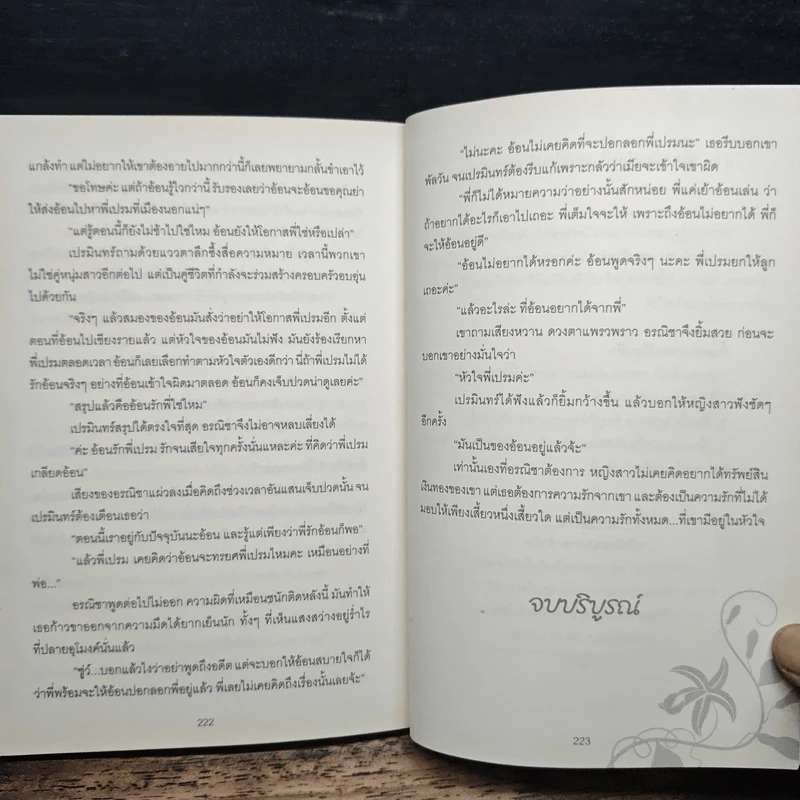 แกล้งทำ แต่ไม่อยากให้เขาต้องอายไปมากกว่านี้ก็เลยพยายามกลั้นขำเอาไว้
“ขอโทษค่ะ แต่ถ้าอ้อนรู้ใจกว่านี้ รับรองเลยว่าอ้อนจะอ้อนขอคุณย่า
ให้ส่งอ้อนไปหาพี่เปรมที่เมืองนอกแน่ๆ”
“แต่รู้ตอนนี้ก็ยังไม่ช้าไปใช่ไหม อ้อนยังให้โอกาสพี่ใช่หรือเปล่า”
เปรมินทร์ถามด้วยแววตาลึกซึ้งสื่อความหมาย เวลานี้พวกเขา
ไม่ใช่คู่หนุ่มสาวอีกต่อไป แต่เป็นคู่ชีวิตที่กำลังจะร่วมสร้างครอบครัวอบอุ่น
ไปด้วยกัน
“จริงๆ แล้วสมองของอ้อนมันสั่งว่าอย่าให้โอกาสพี่เปรมอีก ตั้งแต่
ตอนที่อ้อนไปเชียงรายแล้ว แต่หัวใจของอ้อนมันไม่ฟัง มันยังร้องเรียกหา
พี่เปรมตลอดเวลา อ้อนก็เลยเลือกทำตามหัวใจตัวเองดีกว่า นี่ถ้าพี่เปรมไม่ได้
รักอ้อนจริงๆ อย่างที่อ้อนเข้าใจผิดมาตลอด อ้อนก็คงเจ็บปวดน่าดูเลยค่ะ”
“สรุปแล้วคืออ้อนรักพี่ใช่ไหม”
เปรมินทร์สรุปได้ตรงใจที่สุด อรณิชาจึงไม่อาจหลบเลี่ยงได้
“ค่ะ อ้อนรักพี่เปรม รักจนเสียใจทุกครั้งนั่นแหละค่ะ ที่คิดว่าพี่เปรม
เกลียดอ้อน”
เสียงของอรณิชาแผ่วลงเมื่อคิดถึงช่วงเวลาอันแสนเจ็บปวดนั้น จน
เปรมินทร์ต้องเตือนเธอว่า
“ตอนนี้เราอยู่กับปัจจุบันนะอ้อน และรู้แต่เพียงว่าพี่รักอ้อนก็พอ”
“แล้วพี่เปรม เคยคิดว่าอ้อนจะทรยศพี่เปรมไหมคะ เหมือนอย่างที่
พ่อ...”
อรณิชาพูดต่อไปไม่ออก ความผิดที่เหมือนชนักติดหลังนี้ มันทำให้
เธอก้าวขาออกจากความมืดได้ยากเย็นนัก ทั้งๆ ที่เห็นแสงสว่างอยู่รำไร
ที่ปลายอุโมงค์นั่นแล้ว
“ชู่ว์...บอกแล้วไงว่าอย่าพูดถึงอดีต แต่จะบอกให้อ้อนสบายใจก็ได้
ว่าพี่พร้อมจะให้อ้อนปอกลอกพี่อยู่แล้ว พี่เลยไม่เคยคิดถึงเรื่องนั้นเลยจ้ะ”
222
“ไม่นะคะ อ้อนไม่เคยคิดที่จะปอกลอกพี่เปรมนะ” เธอรีบบอกเขา
พัลวัน จนเปรมินทร์ต้องรีบแก้เพราะกลัวว่าเมียจะเข้าใจเขาผิด
“พี่ก็ไม่ได้หมายความว่าอย่างนั้นสักหน่อย พี่แค่เย้าอ้อนเล่น ว่า
ถ้าอยากได้อะไรก็เอาไปเถอะ พี่เต็มใจจะให้ เพราะถึงอ้อนไม่อยากได้ พี่ก็
จะให้อ้อนอยู่ดี”
“อ้อนไม่อยากได้หรอกค่ะ อ้อนพูดจริงๆ นะคะ พี่เปรมยกให้ลูก
เถอะค่ะ”
“แล้วอะไรล่ะ ที่อ้อนอยากได้จากพี่”
เขาถามเสียงหวาน ดวงตาแพรวพราว อรณิชาจึงยิ้มสวย ก่อนจะ
บอกเขาอย่างมั่นใจว่า
“หัวใจพี่เปรมค่ะ”
เปรมินทร์ได้ฟังแล้วก็ยิ้มกว้างขึ้น แล้วบอกให้หญิงสาวฟังชัดๆ
อีกครั้ง
“มันเป็นของอ้อนอยู่แล้วจ้ะ”
เท่านั้นเองที่อรณิชาต้องการ หญิงสาวไม่เคยคิดอยากได้ทรัพย์สิน
เงินทองของเขา แต่เธอต้องการความรักจากเขา และต้องเป็นความรักที่ไม่ได้
มอบให้เพียงเสี้ยวหนึ่งเสี้ยวใด แต่เป็นความรักทั้งหมด...ที่เขามีอยู่ในหัวใจ
จบบริบูรณ์
223